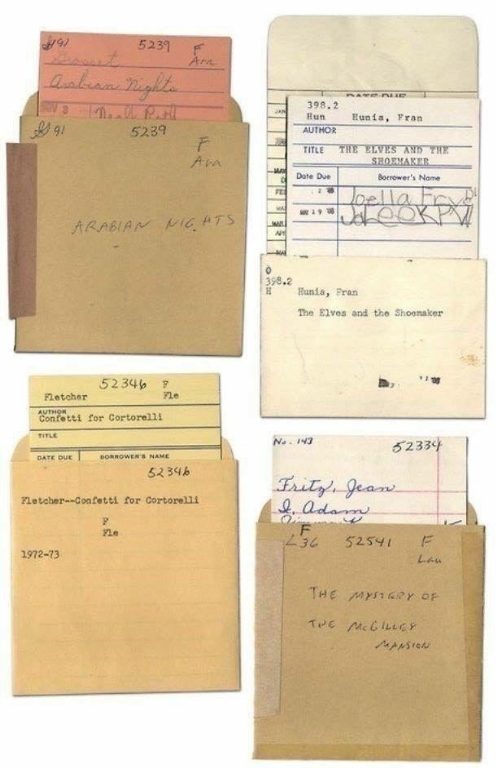 5239 F
Grosset Ara
Arabian Nights
91 5239
F
Ara
ARABIAN NIGHTS
DATE DUE
398.2
Hun Hunia, Fran
AUTHOR
TITLE THE ELVES AND THE
SHOEMAKER
Date Due Borrower's Name
Joella Frye
O
398.2
H Hunia, Fran
The Elves and the Shoemaker
52346 F
Fletcher Fle
AUTHOR
Confetti for Cortorelli
TITLE
DATE DUE BORROWER'S NAME
52346
Fletcher--Confetti for Cortorelli
F
Fle
1972-73
No. 143 52334
Fritz, Jean
I, Adam
F
L36 52541 F
Lau
THE MYSTERY OF
THE McGILLEY
MANSION